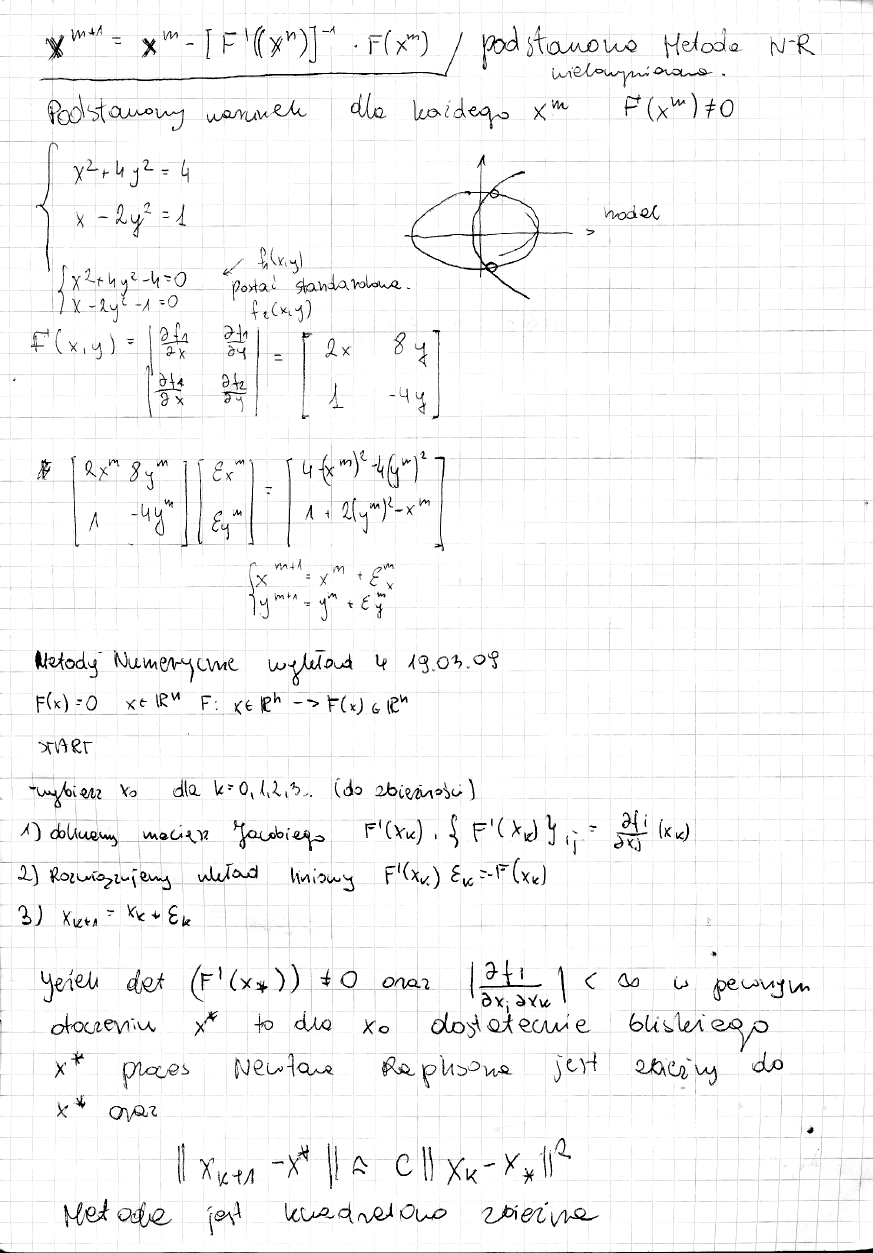 x^{m+1} = x^m - [F'(x^m)]^{-1} · F(x^m) / podstawowa Metoda N-R
wielowymiarowa.
Podstawowy warunek dla każdego x^m F'(x^m) ≠ 0
x² + 4y² = 4
x - 2y² = 1
model
x² + 4y² - 4 = 0 ← f₁(x,y)
x - 2y² - 1 = 0 postać standardowa.
f₂(x,y)
F'(x,y) = | ∂f₁/∂x ∂f₁/∂y | = [ 2x 8y ]
| ∂f₂/∂x ∂f₂/∂y | [ 1 -4y ]
[ 2x^m 8y^m ] [ εx^m ] = [ 4-(x^m)²-4(y^m)² ]
[ 1 -4y^m ] [ εy^m ] [ 1 + 2(y^m)² - x^m ]
x^{m+1} = x^m + ε_x^m
y^{m+1} = y^m + ε_y^m
Metody Numeryczne wykład 4 19.03.09
F(x) = 0 x ∈ ℝⁿ F: x ∈ ℝⁿ --> F(x) ∈ ℝⁿ
START
-wybierz x₀ dla k = 0, 1, 2, 3... (do zbieżności)
1) macierz Jacobiego F'(x_k), { F'(x_k) }_{ij} = ∂f_i/∂x_j (x_k)
2) Rozwiązujemy układ liniowy F'(x_k) ε_k = -F(x_k)
3) x_{k+1} = x_k + ε_k
Jeżeli det (F'(x_*)) ≠ 0 oraz | ∂f_i / ∂x_j ∂x_k | < ∞ w pewnym
otoczeniu x* to dla x₀ dostatecznie bliskiego
x* proces Newtona Raphsona jest zbieżny do
x* oraz
|| x_{k+1} - x* || ≈ C || x_k - x_* ||²
Metoda jest kwadratowo zbieżna